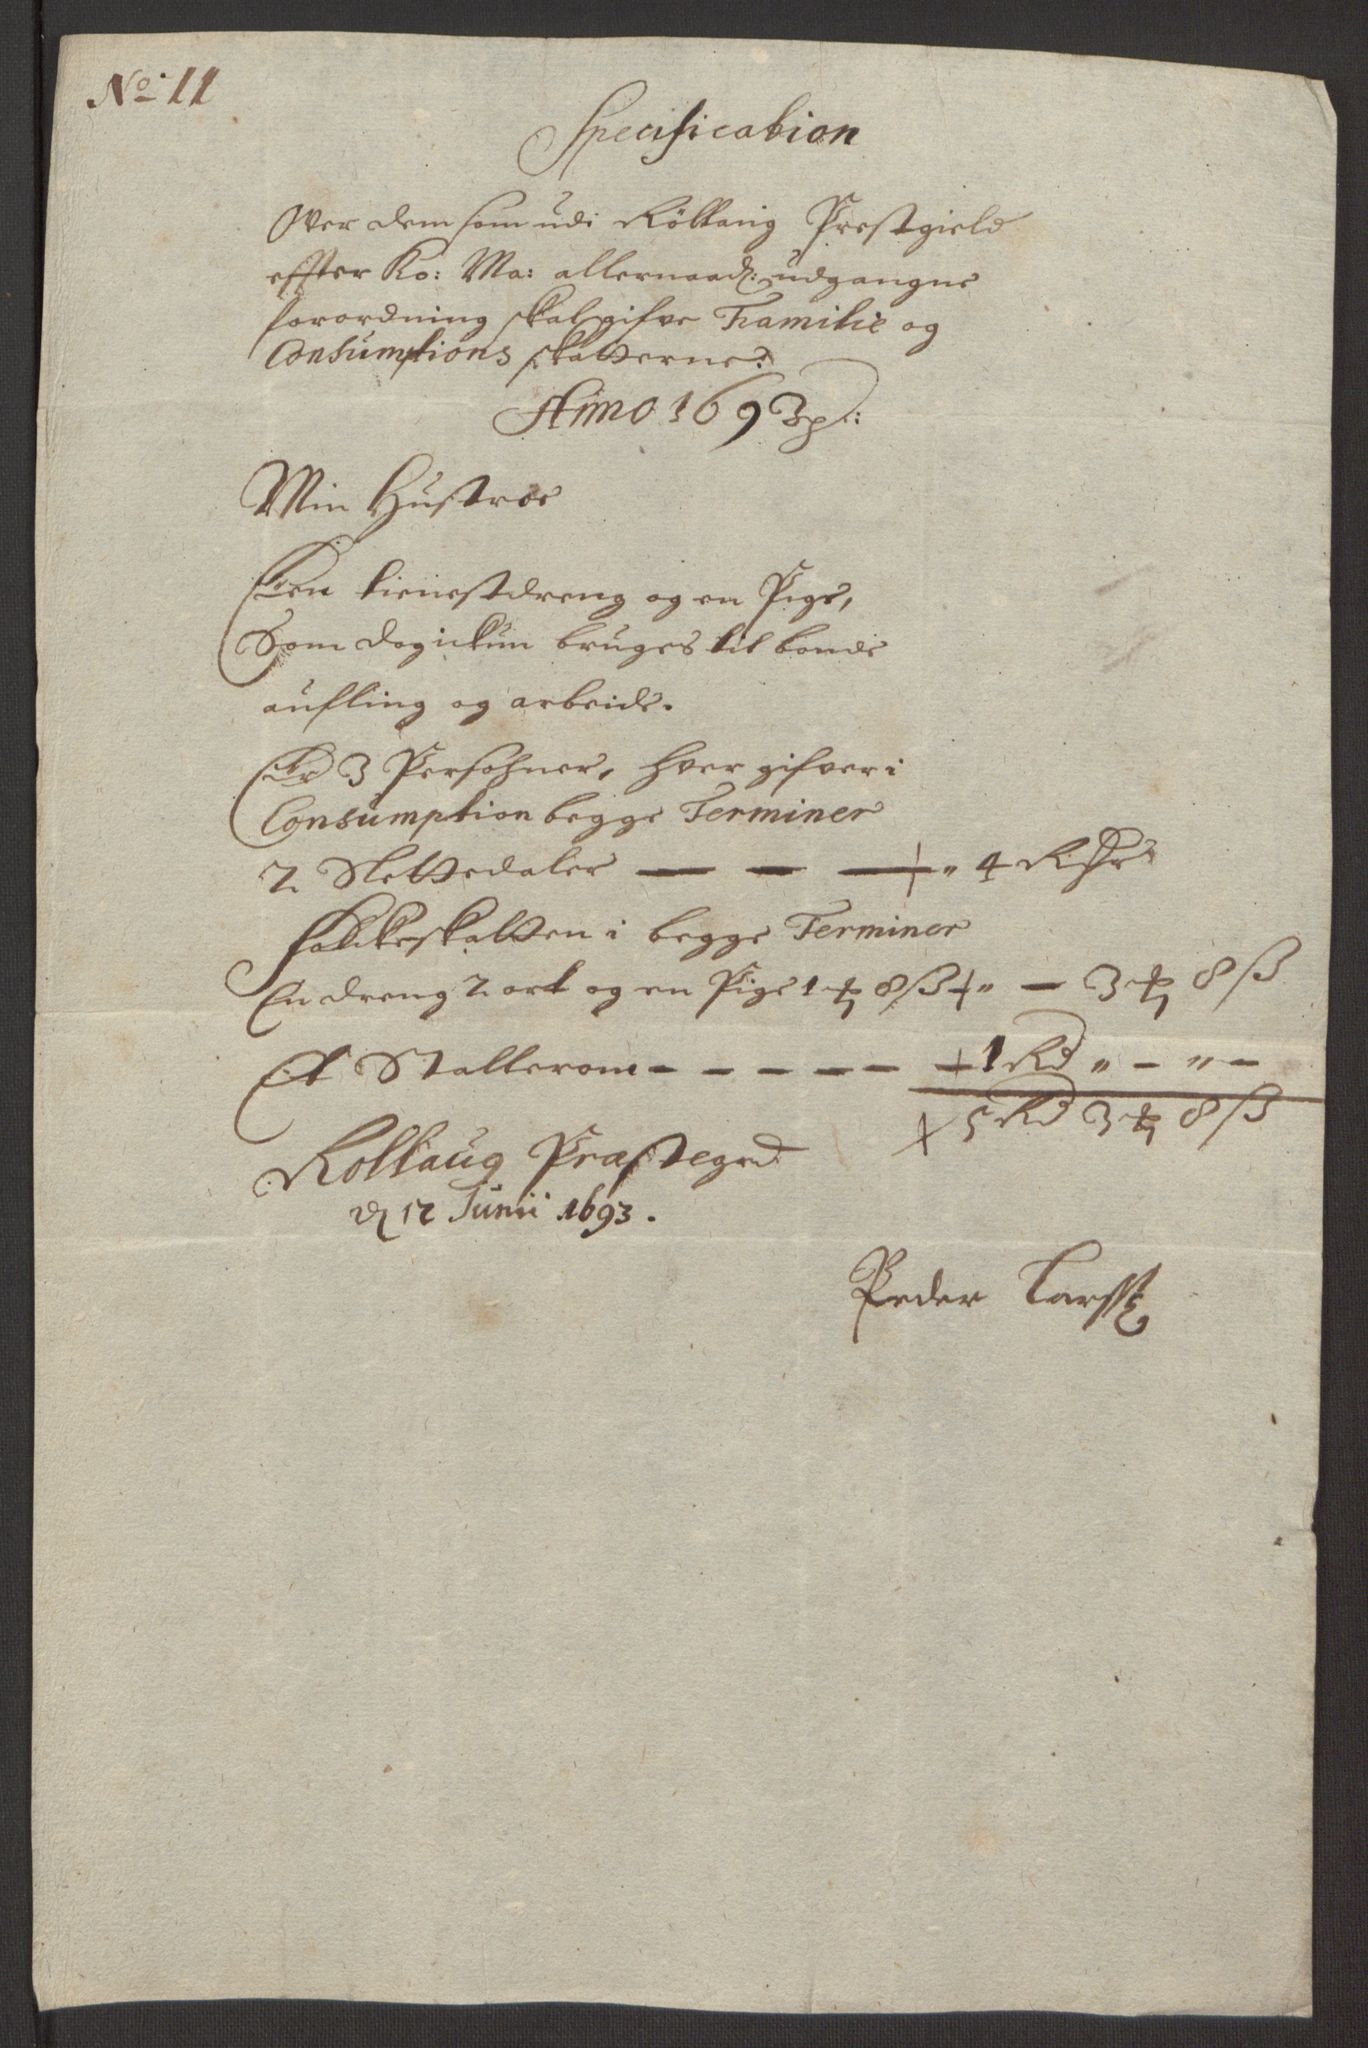 No: 11
Specification
Ofver dem som udi Rollaug Prestgield
effter Ko: Ma: allernaad: udgangne
forordning skal gifve Familie og
Consumptions skatterne:
Anno 1693 p:
Min Hustroe
Een tienestdreng og en Pige,
Som dog ickun bruges til bonde
aufling og arbeide.
Er 3 Persohner, hver gifver i
Consumption begge Terminer
2 Slettedaler — — — " 4 Rdr
Folckeskatten i begge Terminer
En dreng 2 ort og en Pige 1 ort 8 ß " — 3 ort 8 ß
Et Stallerom — — — — — 1 Rd " — " —
5 Rd 3 ort 8 ß
Rollaug Præstegrd
d 12 Junii 1693.
Peder Larss